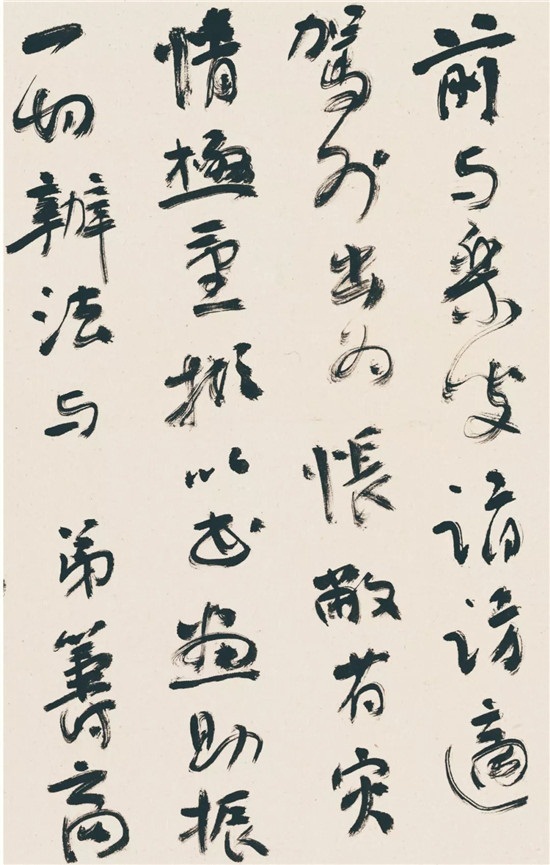 前与乐叟诣访适
驾外出为怅敝省灾
情极重拟以书画助振
一切办法与弟筹商